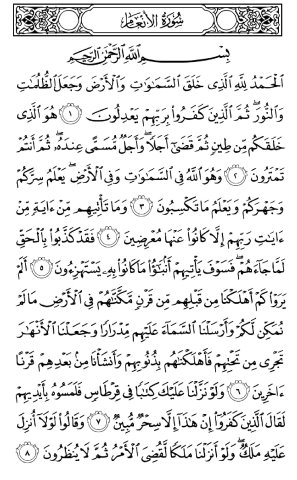 سُورَةُ الأَنْعَامِ
بِسْمِ اللَّهِ الرَّحْمَٰنِ الرَّحِيمِ
الْحَمْدُ لِلَّهِ الَّذِي خَلَقَ السَّمَاوَاتِ وَالْأَرْضَ وَجَعَلَ الظُّلُمَاتِ
وَالنُّورَ ۖ ثُمَّ الَّذِينَ كَفَرُوا بِرَبِّهِمْ يَعْدِلُونَ ١ هُوَ الَّذِي
خَلَقَكُم مِّن طِينٍ ثُمَّ قَضَىٰ أَجَلًا ۖ وَأَجَلٌ مُّسَمًّى عِندَهُ ۖ ثُمَّ أَنتُمْ
تَمْتَرُونَ ٢ وَهُوَ اللَّهُ فِي السَّمَاوَاتِ وَفِي الْأَرْضِ ۖ يَعْلَمُ سِرَّكُمْ
وَجَهْرَكُمْ وَيَعْلَمُ مَا تَكْسِبُونَ ٣ وَمَا تَأْتِيهِم مِّنْ ءَايَةٍ مِّنْ
ءَايَاتِ رَبِّهِمْ إِلَّا كَانُوا عَنْهَا مُعْرِضِينَ ٤ فَقَدْ كَذَّبُوا بِالْحَقِّ
لَمَّا جَاءَهُمْ ۖ فَسَوْفَ يَأْتِيهِمْ أَنبَاءُ مَا كَانُوا بِهِ يَسْتَهْزِءُونَ ٥ أَلَمْ
يَرَوْا كَمْ أَهْلَكْنَا مِن قَبْلِهِم مِّن قَرْنٍ مَّكَّنَّاهُمْ فِي الْأَرْضِ مَا لَمْ
نُمَكِّن لَّكُمْ وَأَرْسَلْنَا السَّمَاءَ عَلَيْهِم مِّدْرَارًا وَجَعَلْنَا الْأَنْهَارَ
تَجْرِي مِن تَحْتِهِمْ فَأَهْلَكْنَاهُم بِذُنُوبِهِمْ وَأَنشَأْنَا مِن بَعْدِهِمْ قَرْنًا
ءَاخَرِينَ ٦ وَلَوْ نَزَّلْنَا عَلَيْكَ كِتَابًا فِي قِرْطَاسٍ فَلَمَسُوهُ بِأَيْدِيهِمْ
لَقَالَ الَّذِينَ كَفَرُوا إِنْ هَٰذَا إِلَّا سِحْرٌ مُّبِينٌ ٧ وَقَالُوا لَوْلَا أُنزِلَ
عَلَيْهِ مَلَكٌ ۖ وَلَوْ أَنزَلْنَا مَلَكًا لَّقُضِيَ الْأَمْرُ ثُمَّ لَا يُنظَرُونَ ٨